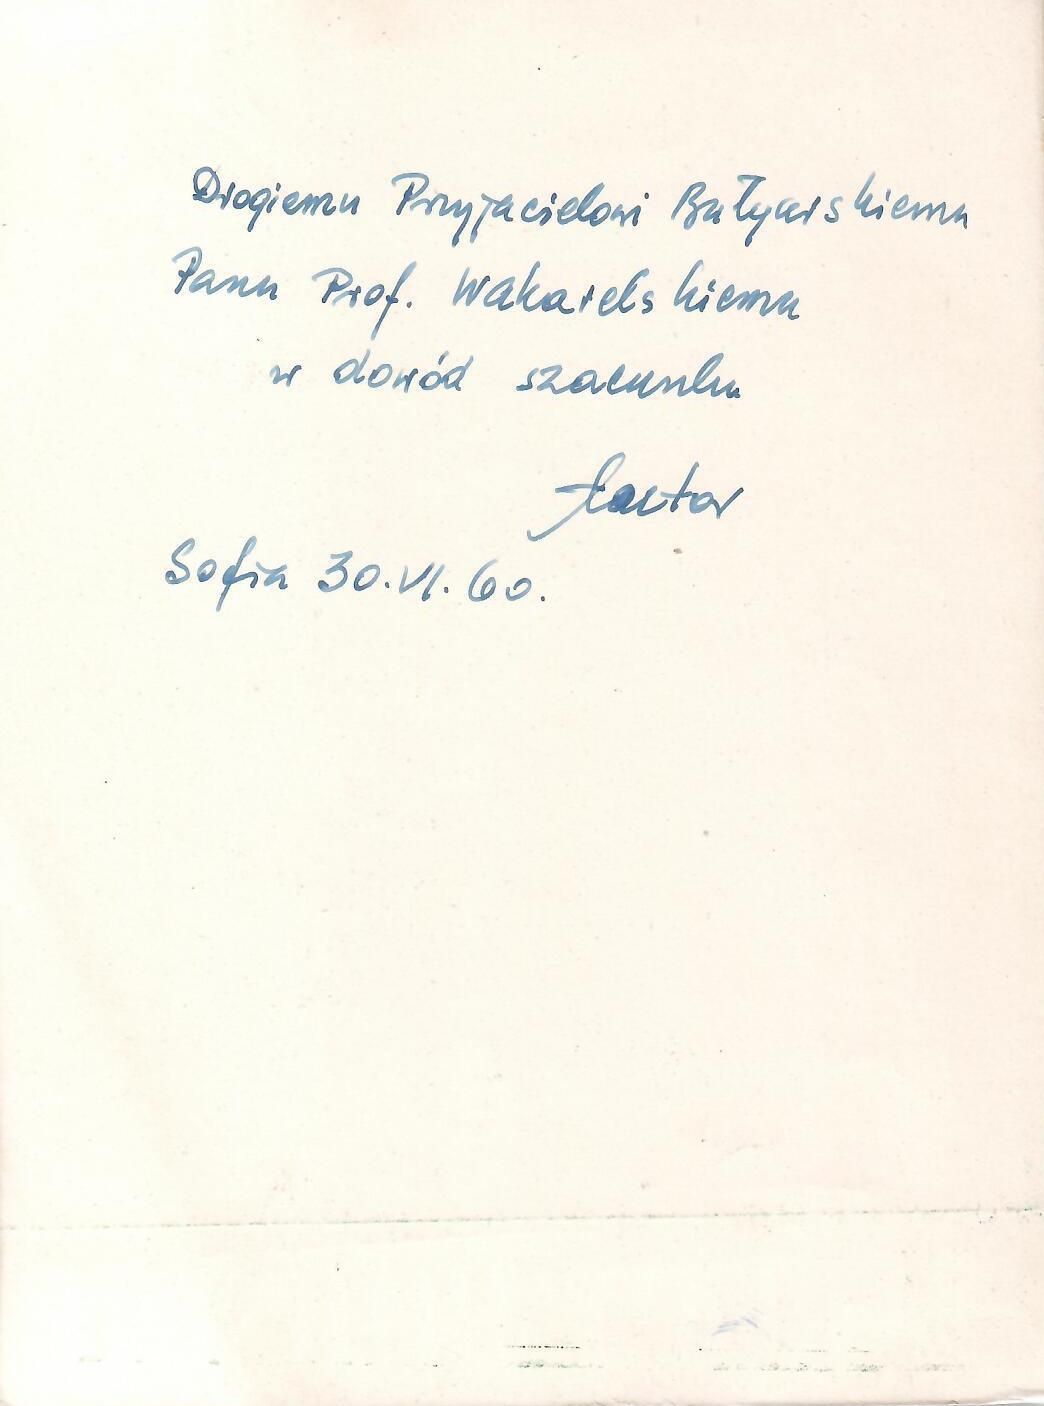 Drogiemu Przyjacielowi Bułgarskiemu
Panu Prof. Wakarelskiemu
w dowód szacunku
Sofia 30.VI.60.